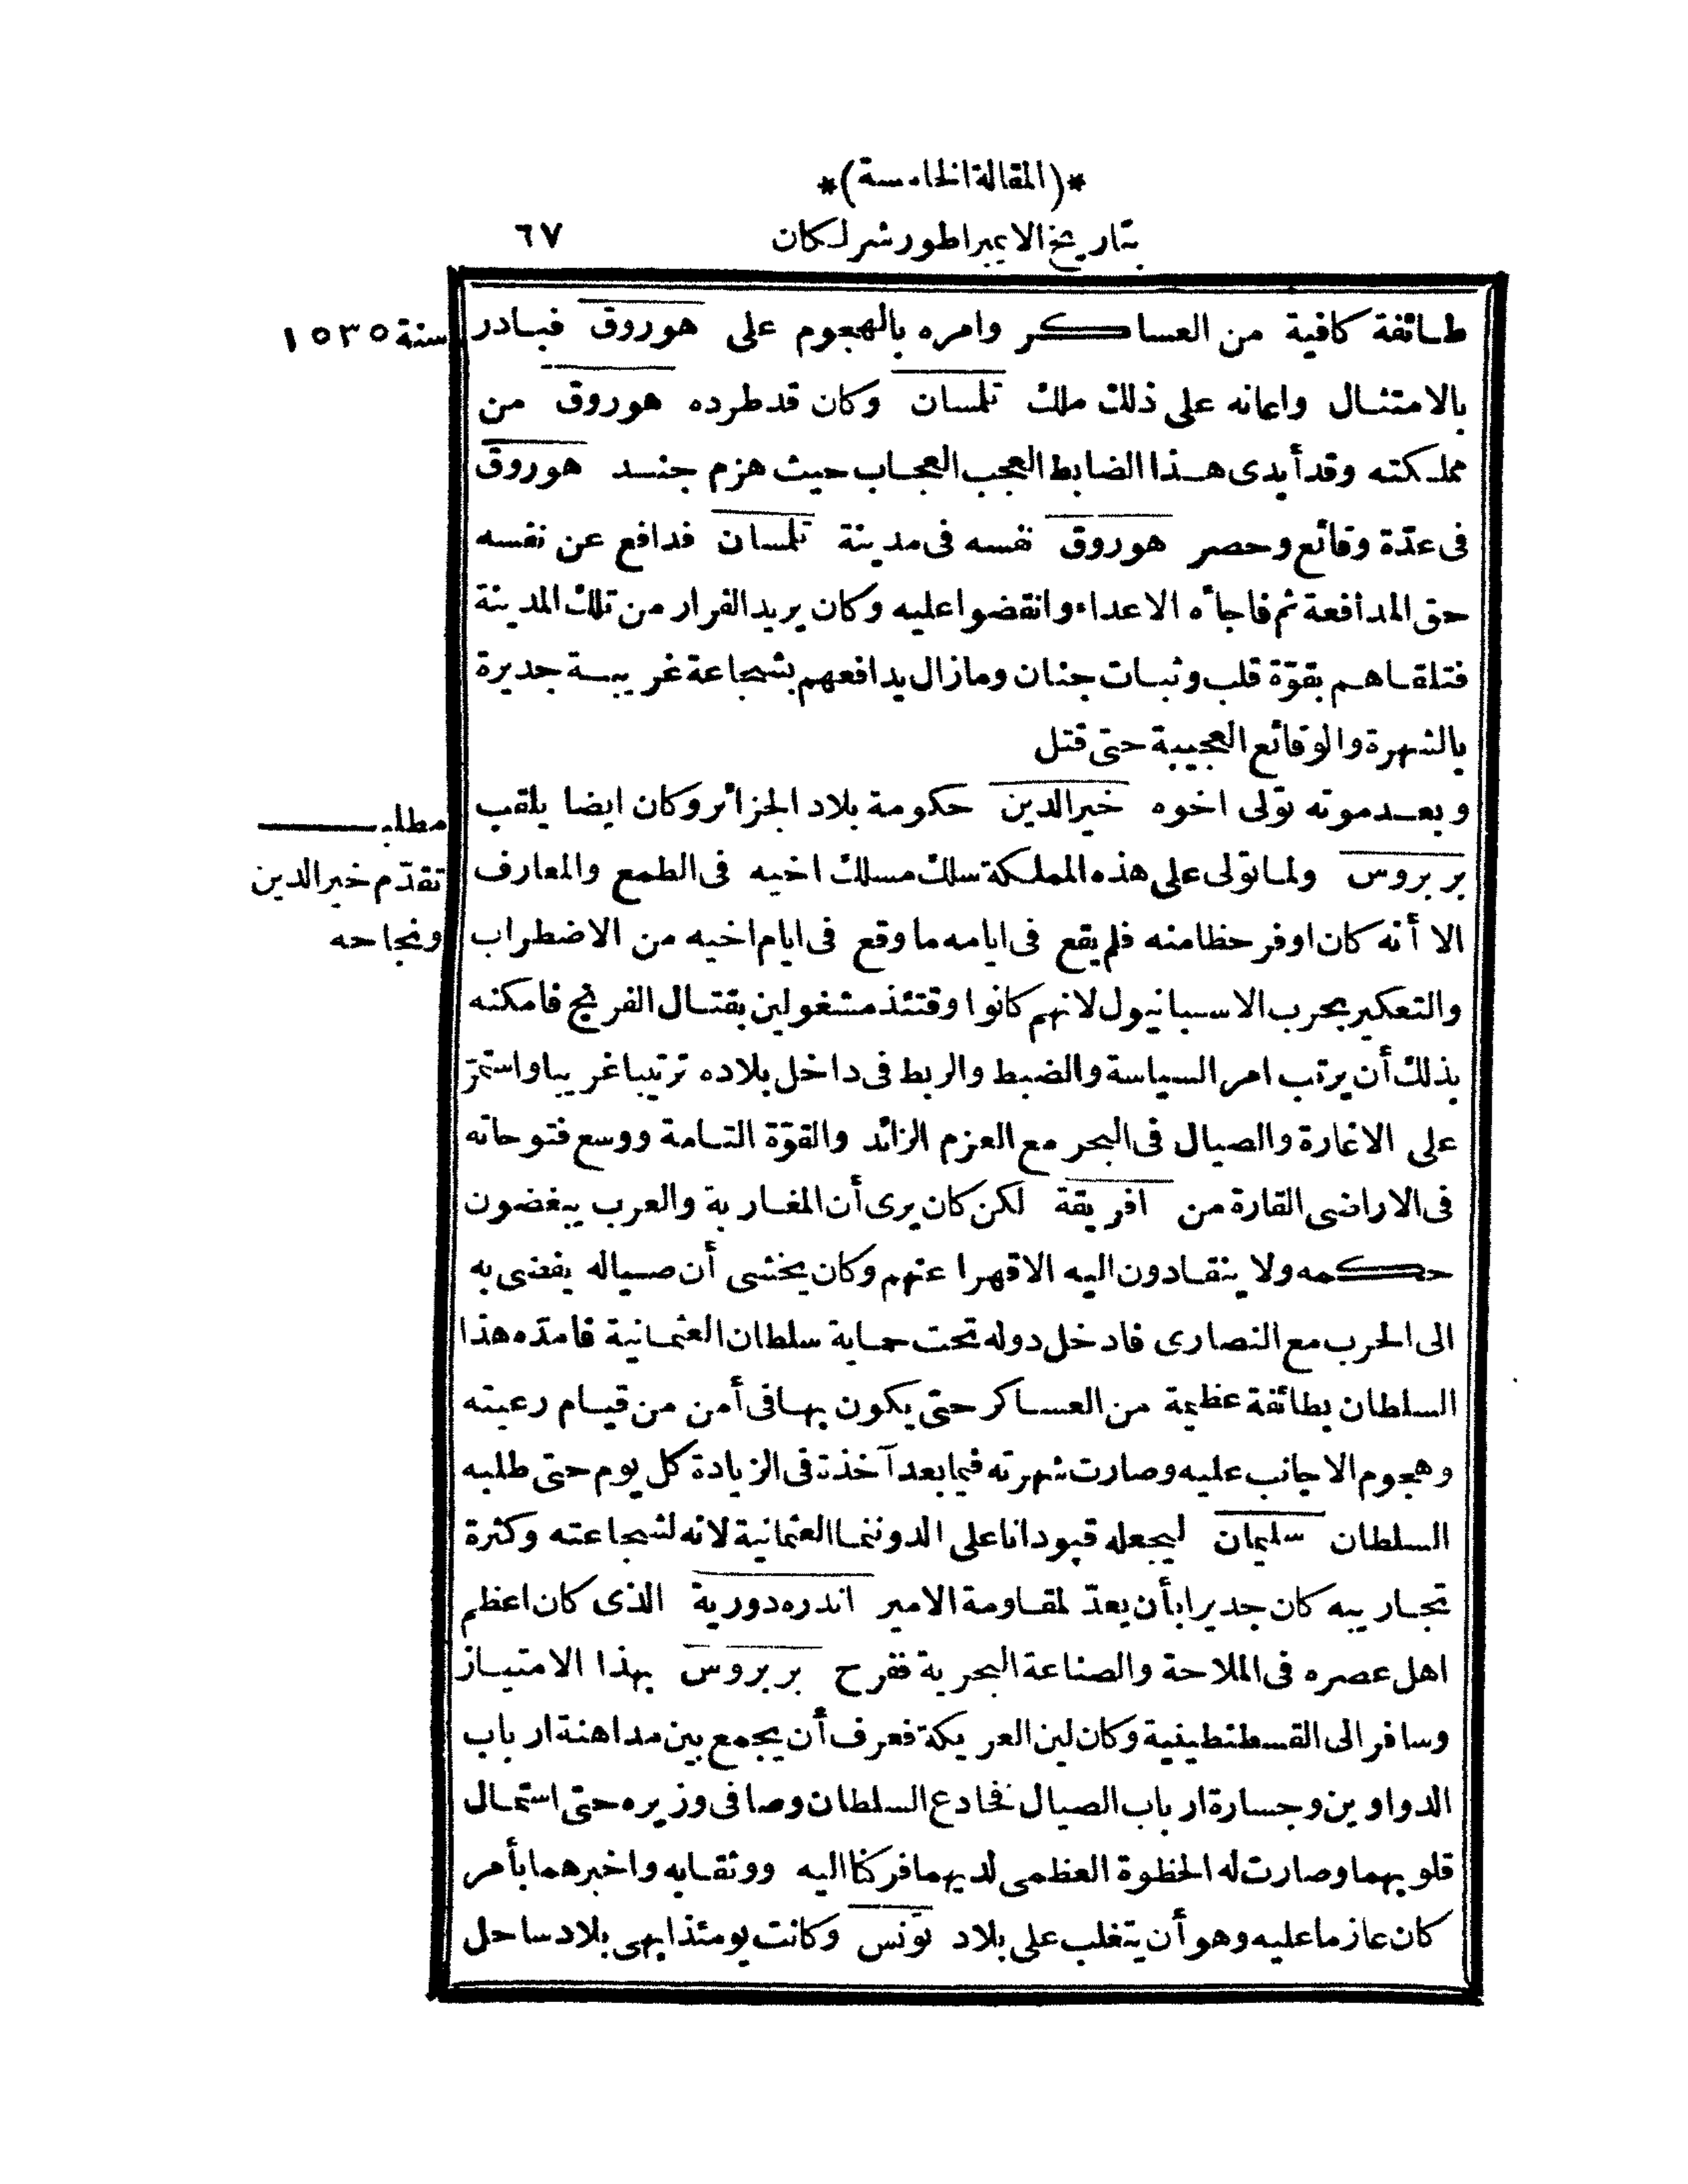 *(المقالة الخامسة)*
بتاريخ الايمبراطور شرلكان
٦٧
طائفة كافية من العساكر وامره بالهجوم على هوروق فبادر
سنة ١٥٣٥
بالامتثال واعانه على ذلك ملك تلمسان وكان قد طرده هوروق من
مملكته وقد أبدى هذا الضابط العجب العجاب حيث هزم جند هوروق
فى عدّة وقائع وحصر هوروق نفسه فى مدينة تلمسان فدافع عن نفسه
حق المدافعة ثم فاجأه الاعداء وانقضوا عليه وكان يريد الفرار من تلك المدينة
فتلقاهم بقوّة قلب وثبات جنان ومازال يدافعهم بشجاعة غريبة جديرة
بالشهرة والوقائع العجيبة حتى قتل
وبعد موته تولى اخوه خير الدين حكومة بلاد الجزائر وكان ايضا يلقب
مطلب
بربروس ولما تولى على هذه المملكة سلك مسلك اخيه فى الطمع والمعارف
تقدّم خير الدين
الا أنه كان اوفر حظا منه فلم يقع فى ايامه ما وقع فى ايام اخيه من الاضطراب
ونجاحه
والتعكير بحرب الاسبانيول لانهم كانوا وقتئذ مشغولين بقتال الفرنج فامكنه
بذلك أن يرتب امر السياسة والضبط والربط فى داخل بلاده ترتيبا غريبا واستمرّ
على الاغارة والصيال فى البحر مع العزم الزائد والقوّة التامة ووسع فتوحاته
فى الاراضى القارة من افريقة لكن كان يرى أن المغاربة والعرب يبغضون
حكمه ولا ينقادون اليه الا قهرا عنهم وكان يخشى أن صياله يفضى به
الى الحرب مع النصارى فادخل دوله تحت حماية سلطان العثمانية فامدّه هذا
السلطان بطائفة عظيمة من العساكر حتى يكون بها فى أمن من قيام رعيته
وهجوم الاجانب عليه وصارت شهرته فيما بعد آخذة فى الزيادة كل يوم حتى طلبه
السلطان سليمان ليجعله قبودانا على الدوننما العثمانية لانه لشجاعته وكثرة
تجاريبه كان جديرا بأن يعدّ لمقاومة الامير اندره دورية الذى كان اعظم
اهل عصره فى الملاحة والصناعة البحرية ففرح بربروس بهذا الامتياز
وسافر الى القسطنطينية وكان لين العريكة فعرف أن يجمع بين مداهنة ارباب
الدواوين وجسارة ارباب الصيال فخادع السلطان وصافى وزيره حتى استمال
قلوبهما وصارت له الحظوة العظمى لديهما فركنا اليه ووثقا به واخبرهما بأمر
كان عازما عليه وهو أن يتغلب على بلاد تونس وكانت يومئذ ابهى بلاد ساحل